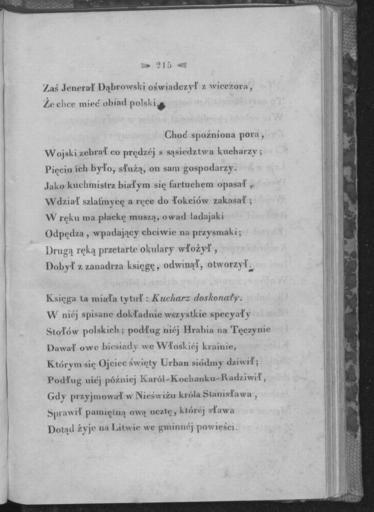 215
Zaś Jenerał Dąbrowski oświadczył z wieczora,
Że chce mieć obiad polski.
Choć spoźniona pora,
Wojski zebrał co prędzéj z sąsiedztwa kucharzy;
Pięciu ich było, służą, on sam gospodarzy.
Jako kuchmistrz białym się fartuchem opasał,
Wdział szlafmycę a ręce do łokciów zakasał;
W ręku ma plackę muszą, owad ladajaki
Odpędza, wpadający chciwie na przysmaki;
Drugą ręką przetarte okulary włożył,
Dobył z zanadrza księgę, odwinął, otworzył.
Księga ta miała tytuł: Kucharz doskonały.
W niéj spisane dokładnie wszystkie specyały
Stołów polskich; podług niéj Hrabia na Tęczynie
Dawał owe biesiady we Włoskiéj krainie,
Którym się Ojciec święty Urban siódmy dziwił;
Podług niéj później Karól-Kochanku-Radziwił,
Gdy przyjmował w Nieświżu króla Stanisława,
Sprawił pamiętną ową ucztę, któréj sława
Dotąd żyje na Litwie we gminnéj powieści.